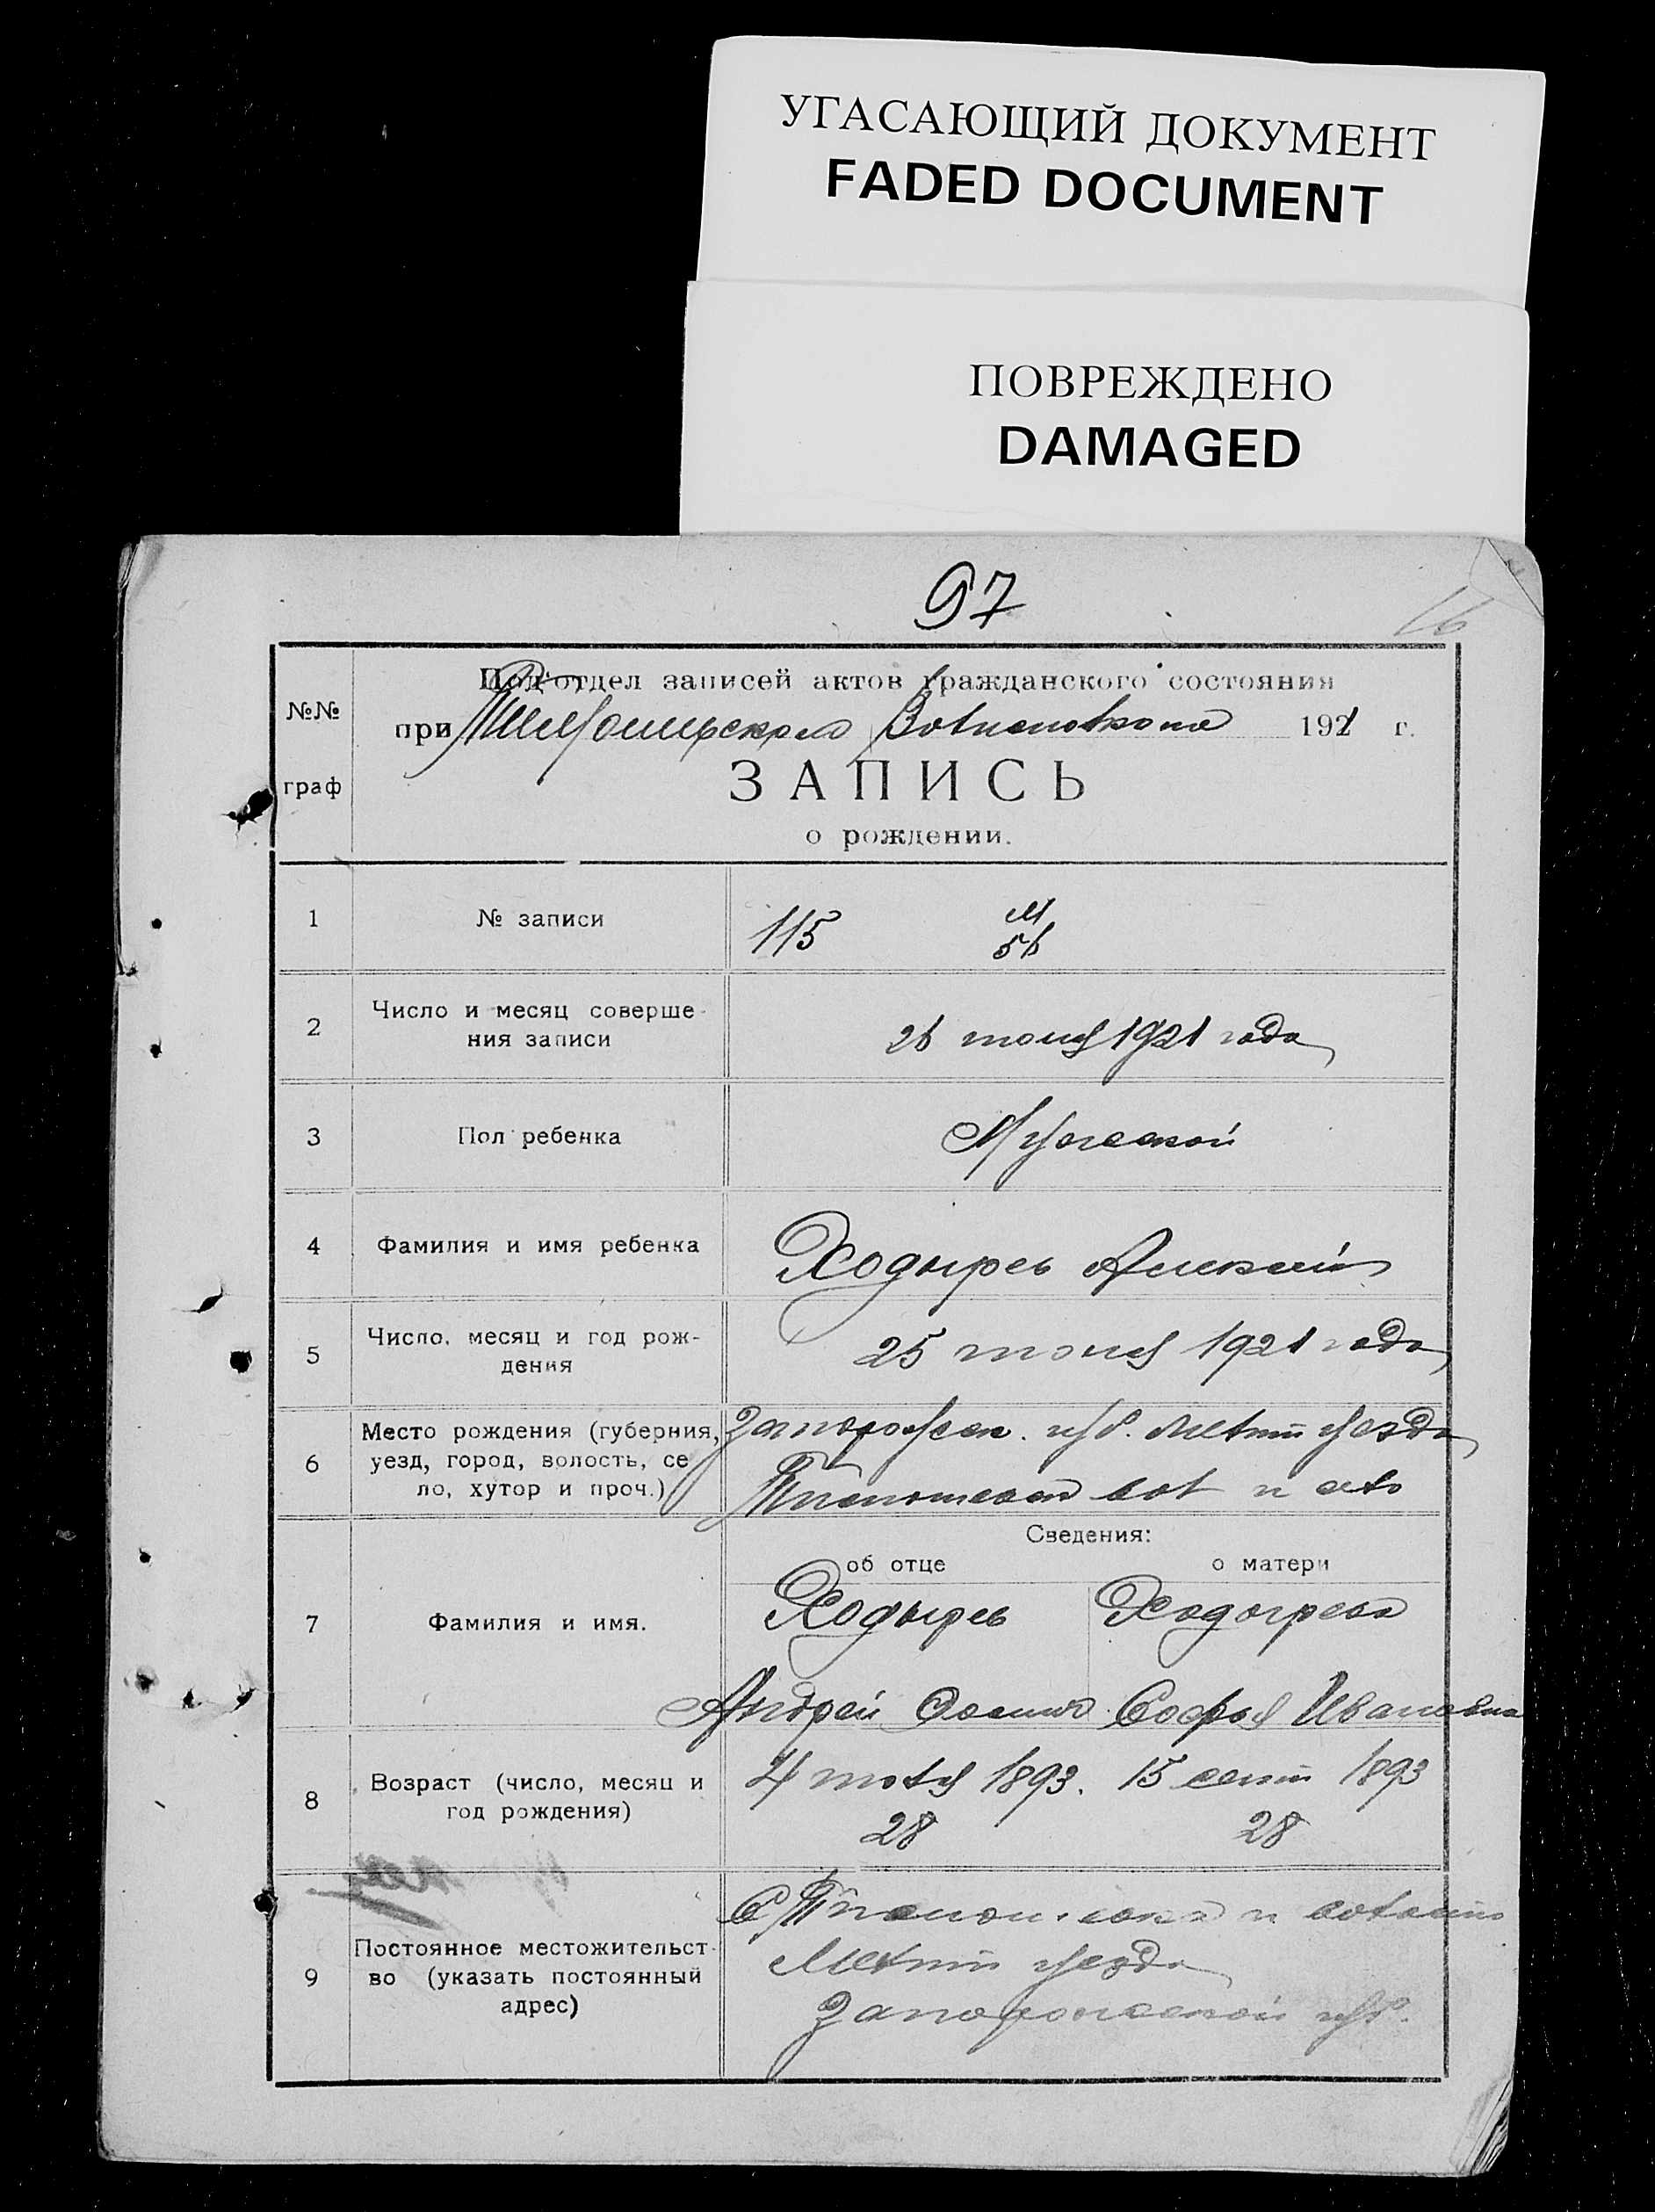 УГАСАЮЩИЙ ДОКУМЕНТ
FADED DOCUMENT
ПОВРЕЖДЕНО
DAMAGED
97
16
Под'отдел записей актов гражданского состояния
№№
при 1921 г.
граф
ЗАПИСЬ
о рождении.
1
№ записи
115
М
56
2
Число и месяц соверше-
ния записи
26 июня 1921 года
3
Пол ребенка
Мужской
4
Фамилия и имя ребенка
Ходырев Алексей
5
Число, месяц и год рож-
дения
25 июня 1921 года
6
Место рождения (губерния,
уезд, город, волость, се
ло, хутор и проч.)
Запорожск. губ. Мелит уезда
вол и село
Сведения:
об отце
о матери
7
Фамилия и имя.
Ходырев
Ходырева
Андрей Осипов
Софья Ивановна
8
Возраст (число, месяц и
год рождения)
4 июля 1893.
15 сент 1893
28
28
9
Постоянное местожительст-
во (указать постоянный
адрес)
С
Мелит уезда
Запорожской губ.